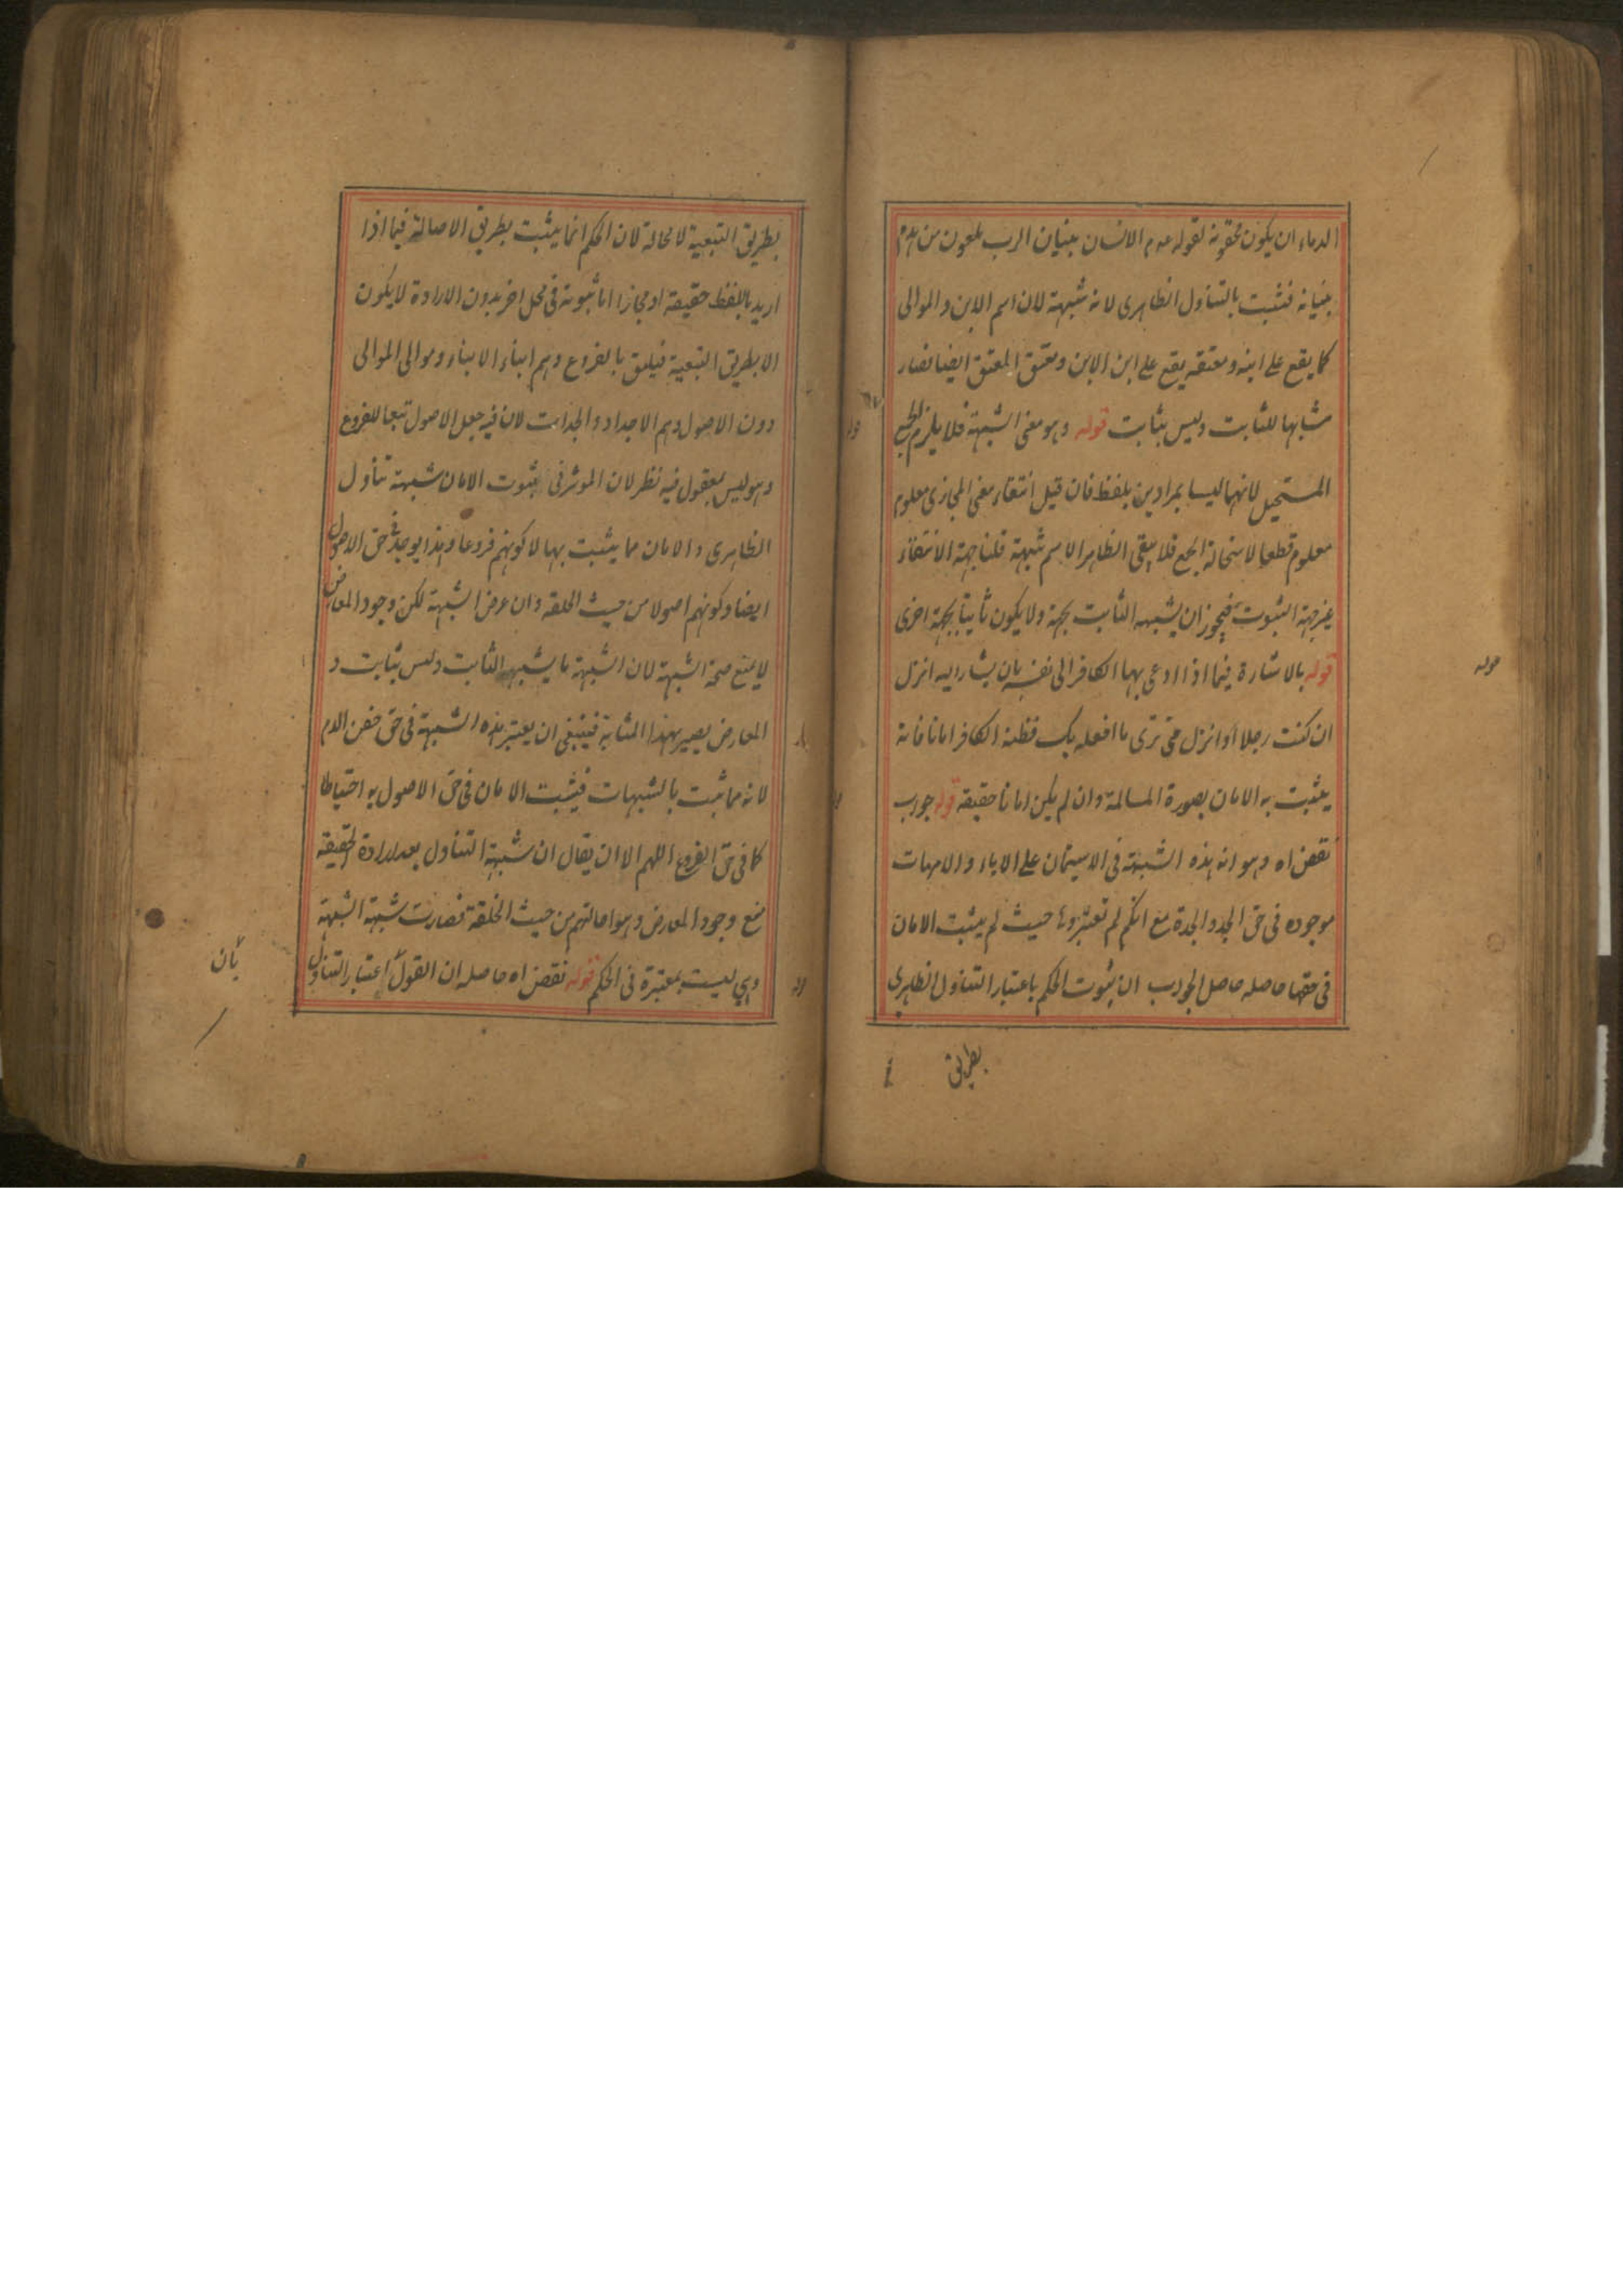 الدماء ان يكون محقونة لقوله عم الانسان بنيان الرب ملعون من هدم
بنيانه فتثبت بالتناول الظاهرى لانه شبهة لان اسم الابن والموالى
كما يقع على ابنه ومعتقه يقع على ابن الابن ومعتق المعتق ايضا فصار
مشابها للثابت وليس بثابت قوله وهو معنى الشبهة فلا يلزم الجمع
المستحيل لانهما ليسا بمرادين بلفظ فان قيل انتفاء معنى المجازى معلوم
معلوم قطعا لاستحالة الجمع فلا يبقى الظاهر الاسم شبهة قلنا جهة الانتفاء
غير جهة الثبوت فيجوز ان يشبه الثابت بجهة ولا يكون ثابتا بجهة اخرى
قوله بالاشارة فيما اذا دعى بها الكافر الى نفسه بان يشار اليه انزل
ان كنت رجلا او انزل حتى ترى ما افعله بك فظنه الكافر امانا فانه
يثبت به الامان بصورة المسالمة وان لم يكن امانا حقيقة قوله جواب
نقض اه وهو ان هذه الشبهة فى الاستيمان على الاباء والامهات
موجوده فى حق الجد والجدة مع انكم لم تعتبروها حيث لم يثبت الامان
فى حقهما حاصله حاصل الجواب ان ثبوت الحكم باعتبار التناول الظاهرى
بطريق
قوله
بطريق التبعية لا محالة لان الحكم انما يثبت بطريق الاصالة فيما اذا
اريد باللفظ حقيقة او مجازا اما ثبوته فى محل اخر بدون الارادة لا يكون
الا بطريق التبعية فيليق بالفروع وهم ابناء الابناء وموالى الموالى
دون الاصول وهم الاجداد والجدات لان فيه جعل الاصول تبعا للفروع
وهو ليس بمعقول فيه نظر لان الموثر فى ثبوت الامان شبهة تناول
الظاهرى والامان مما يثبت بها لا كونهم فروعا وهذا يوجد فى حق الاصول
ايضا وكونهم اصولا من حيث الخلقه وان عرض الشبهة لكن وجود المعارض
لا يمنع صحة الشبهة لان الشبهة ما يشبه الثابت وليس بثابت و
المعارض يصير بهذا المثابة فينبغى ان يعتبر هذه الشبهة فى حق حقن الدم
لانه مما ثبت بالشبهات فيثبت الامان فى حق الاصول به احتياطا
كما فى حق الفروع اللهم الا ان يقال ان شبهة التناول بعد ارادة الحقيقة
منع وجود المعارض وهو اصالتهم من حيث الخلقة فصارت شبهة الشبهة
وهى ليست بمعتبرة فى الحكم قوله نقض اه حاصله ان القول اعتبار التناول
بأن